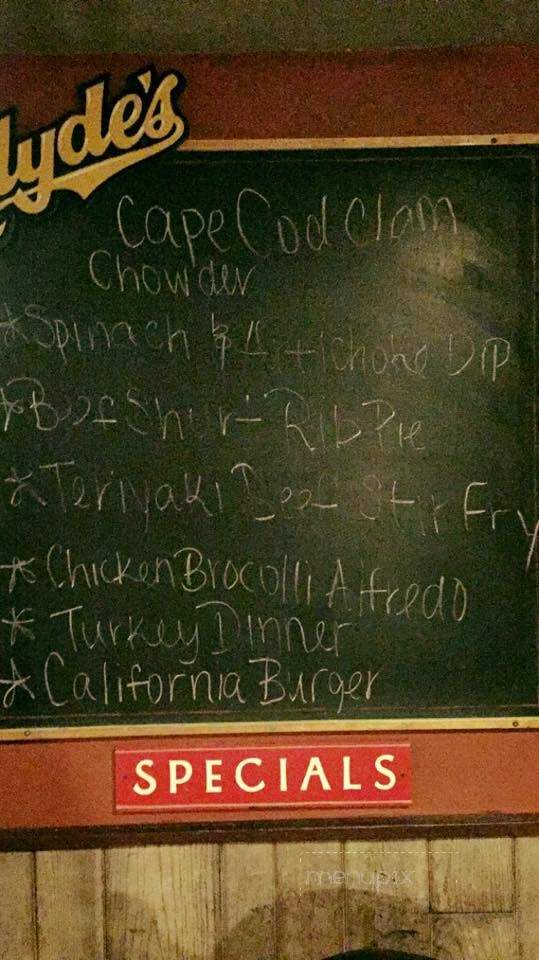 lyde's
Cape Cod Clam
Chowder
*Spinach & Artichoke Dip
*Beef Short Rib Pie
*Teriyaki Beef Stir Fry
*Chicken Brocolli Alfredo
* Turkey Dinner
*California Burger
SPECIALS
menupix